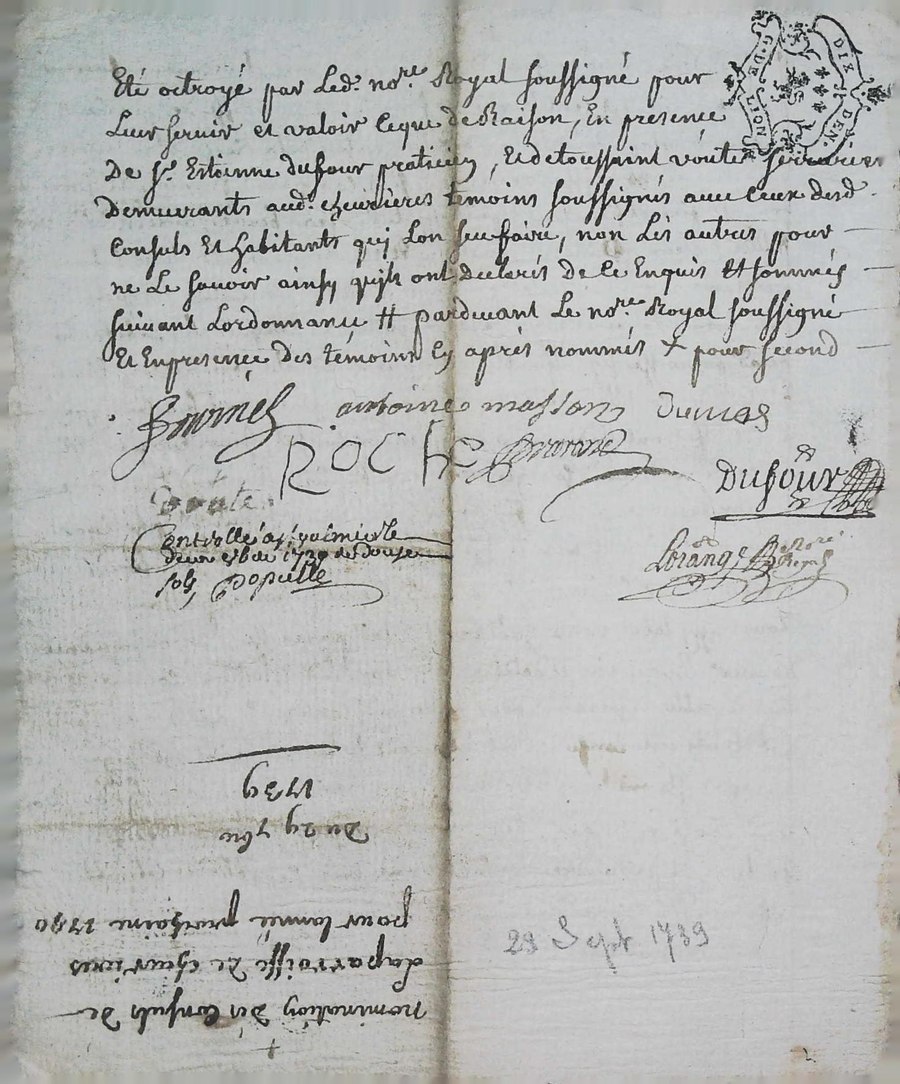 Eté octroyé par Led. nore. Royal soussigné pour
Leur servir et valoir ceque deRaison, En presence
De Sr. Estienne dufour praticien, Et detoussaint voute serrurier
Demeurants aud. cheurières temoins soussignés avec Ceux desd.
Consuls Et habitants qui Lon sceu faire, non Les autres pour
ne Le savoir ainsy quils ont Declarés de Ce Enquis Et sommés
suivant Lordonnance # pardevant Le nore. Royal soussigné
Et Enpresence Des témoins Cy après nommés + pour second
Fournel antoine masson Dumas
ROCHE
Dufour
voute
Controllé a St. galmier le
1739
sols
Lorange Nore Royal
nomination des Consuls de
Laparroisse de cheurieres
pour Lannée prochaine 1740
Du 29 7bre
1739
29 Sept 1739
G. DE LION
DIX DEN.